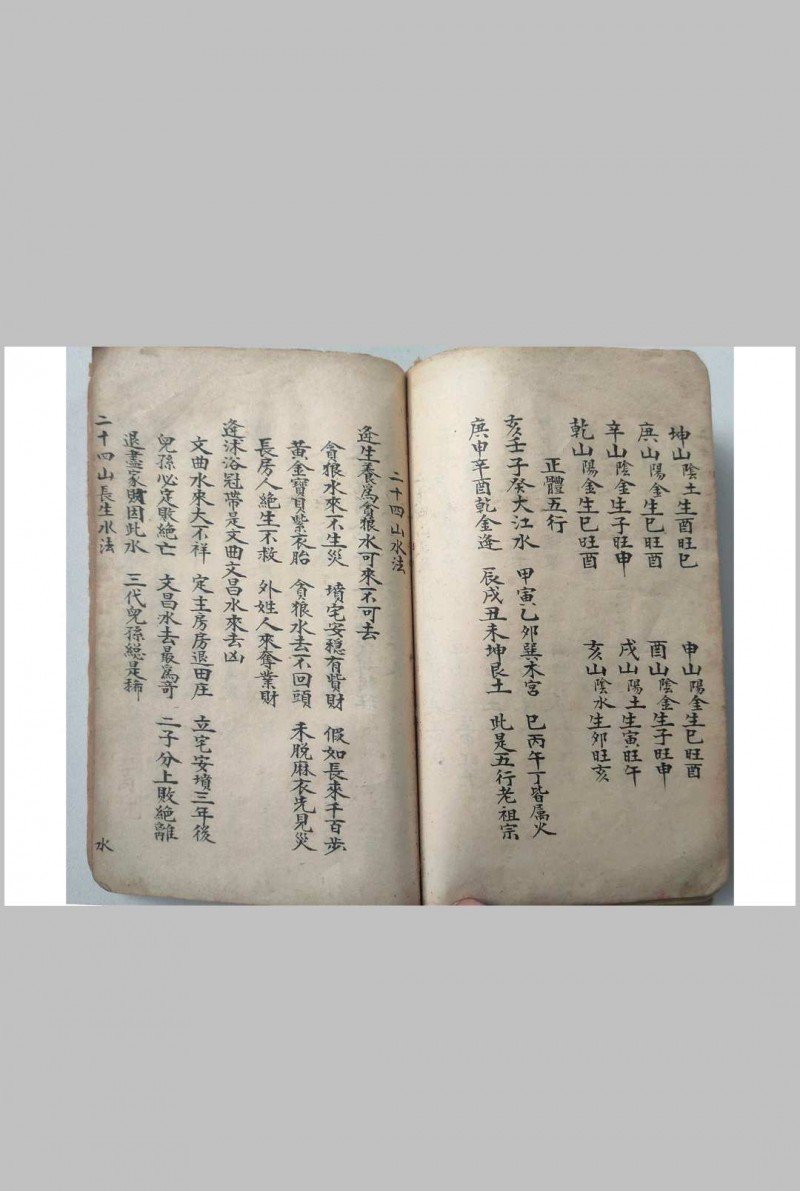 坤山陰土生酉旺巳　申山陽金生巳旺酉
庚山陽金生巳旺酉　酉山陰金生子旺申
辛山陰金生子旺申　戌山陽土生寅旺午
乾山陽金生巳旺酉　亥山陰水生卯旺亥
正體五行
亥壬子癸大江水　甲寅乙卯巽木宮　巳丙午丁皆属火
庚申辛酉乾金逢　辰戌丑未坤艮土　此是五行老祖宗
二十四山水法
逢生養爲貪狼水可來不可去
貪狼水來不生災　墳宅安穏有貲財　假如長來千百步
黃金寶貝紫衣胎　貪狼水去不回頭　未脱麻衣先見災
長房人絶生不救　外姓人來奪業財
逢沐浴冠帶是文曲文昌水來去凶
文曲水來大不祥　定主房房退田庄　立宅安墳三年後
兒孫必定敗絶亡　文昌水去最爲奇　二子分上敗絶離
退盡家財因此水　三代兒孫総是稀
二十四山長生水法　水